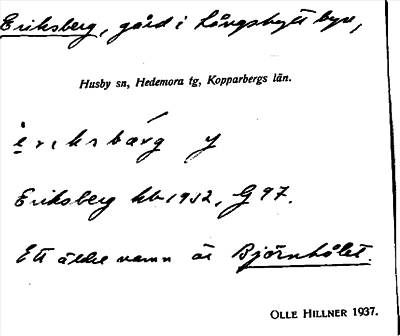 Eriksberg, gård i Långshytt byn,
Husby sn, Hedemora tg, Kopparbergs län.
Eriksberg kb 1932, G 97.
Ett äldre namn är Björnhålet.
OLLE HILLNER 1937.